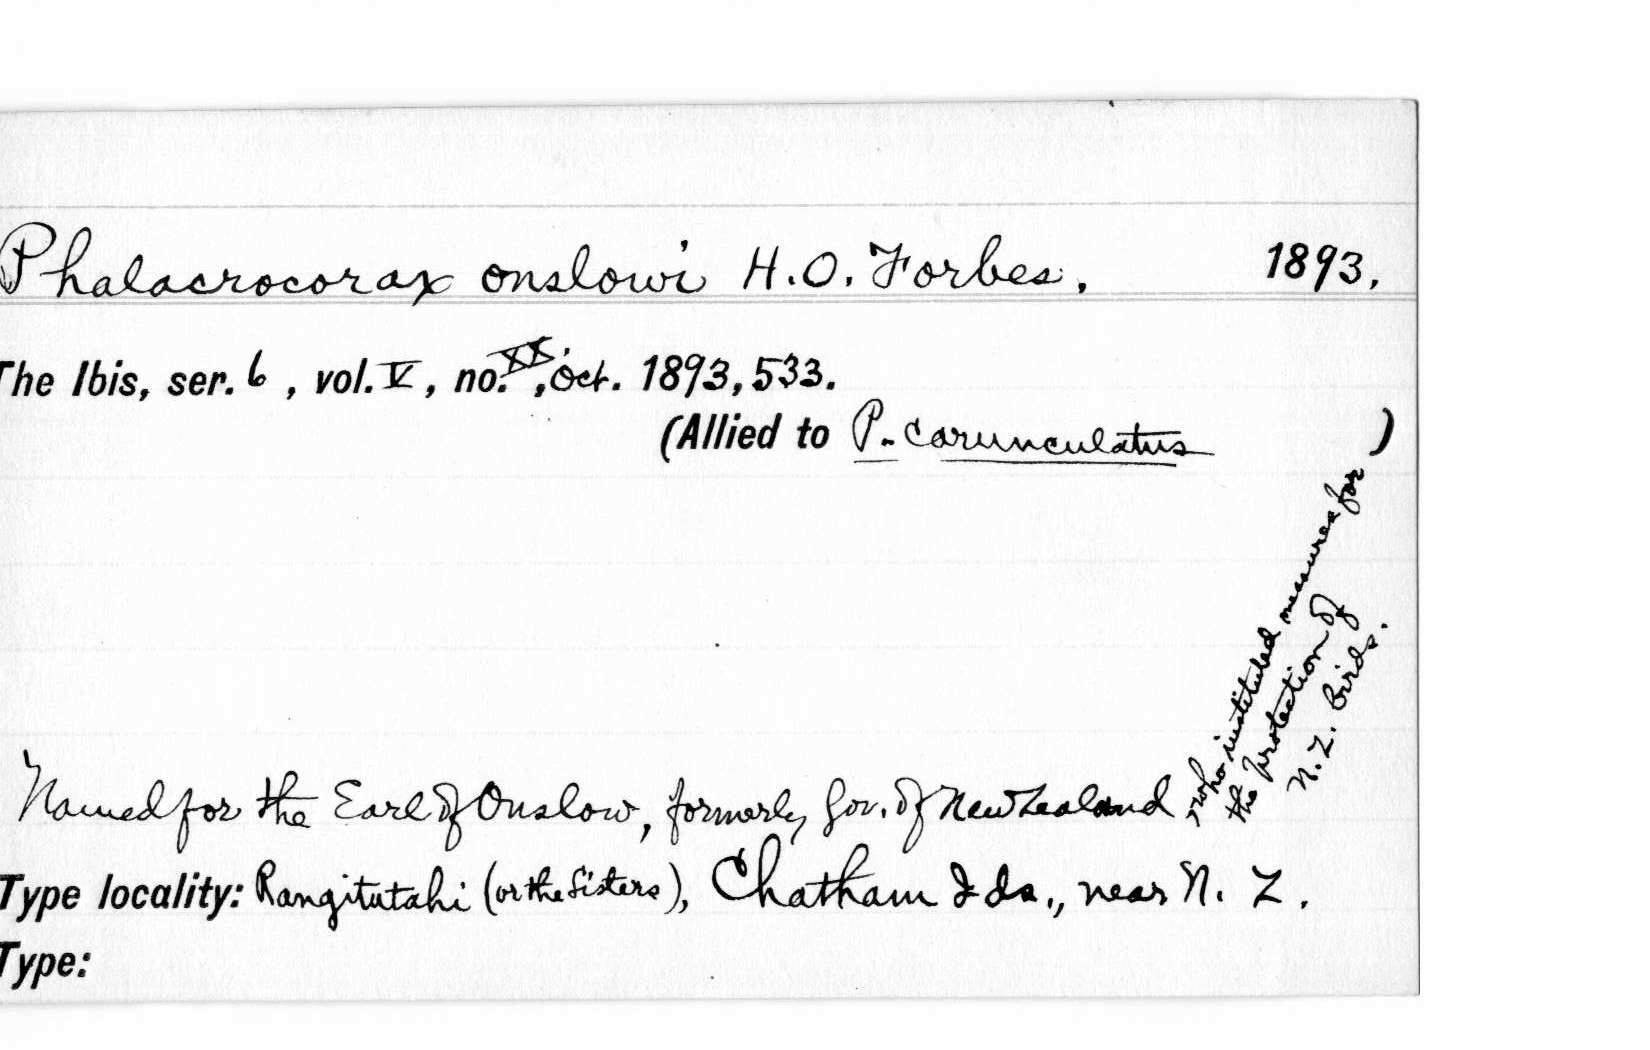 Phalacrocorax onslowi H.O. Forbes. 1893.
The Ibis, ser. 6, vol. V, no. XX., Oct. 1893, 533.
(Allied to P. carunculatus )
Named for the Earl of Onslow, formerly Gov. of New Zealand, who instituted measures for
the protection of
N.Z. birds.
Type locality: Rangitutahi (or the Sisters), Chatham Ids., near N. Z.
Type: